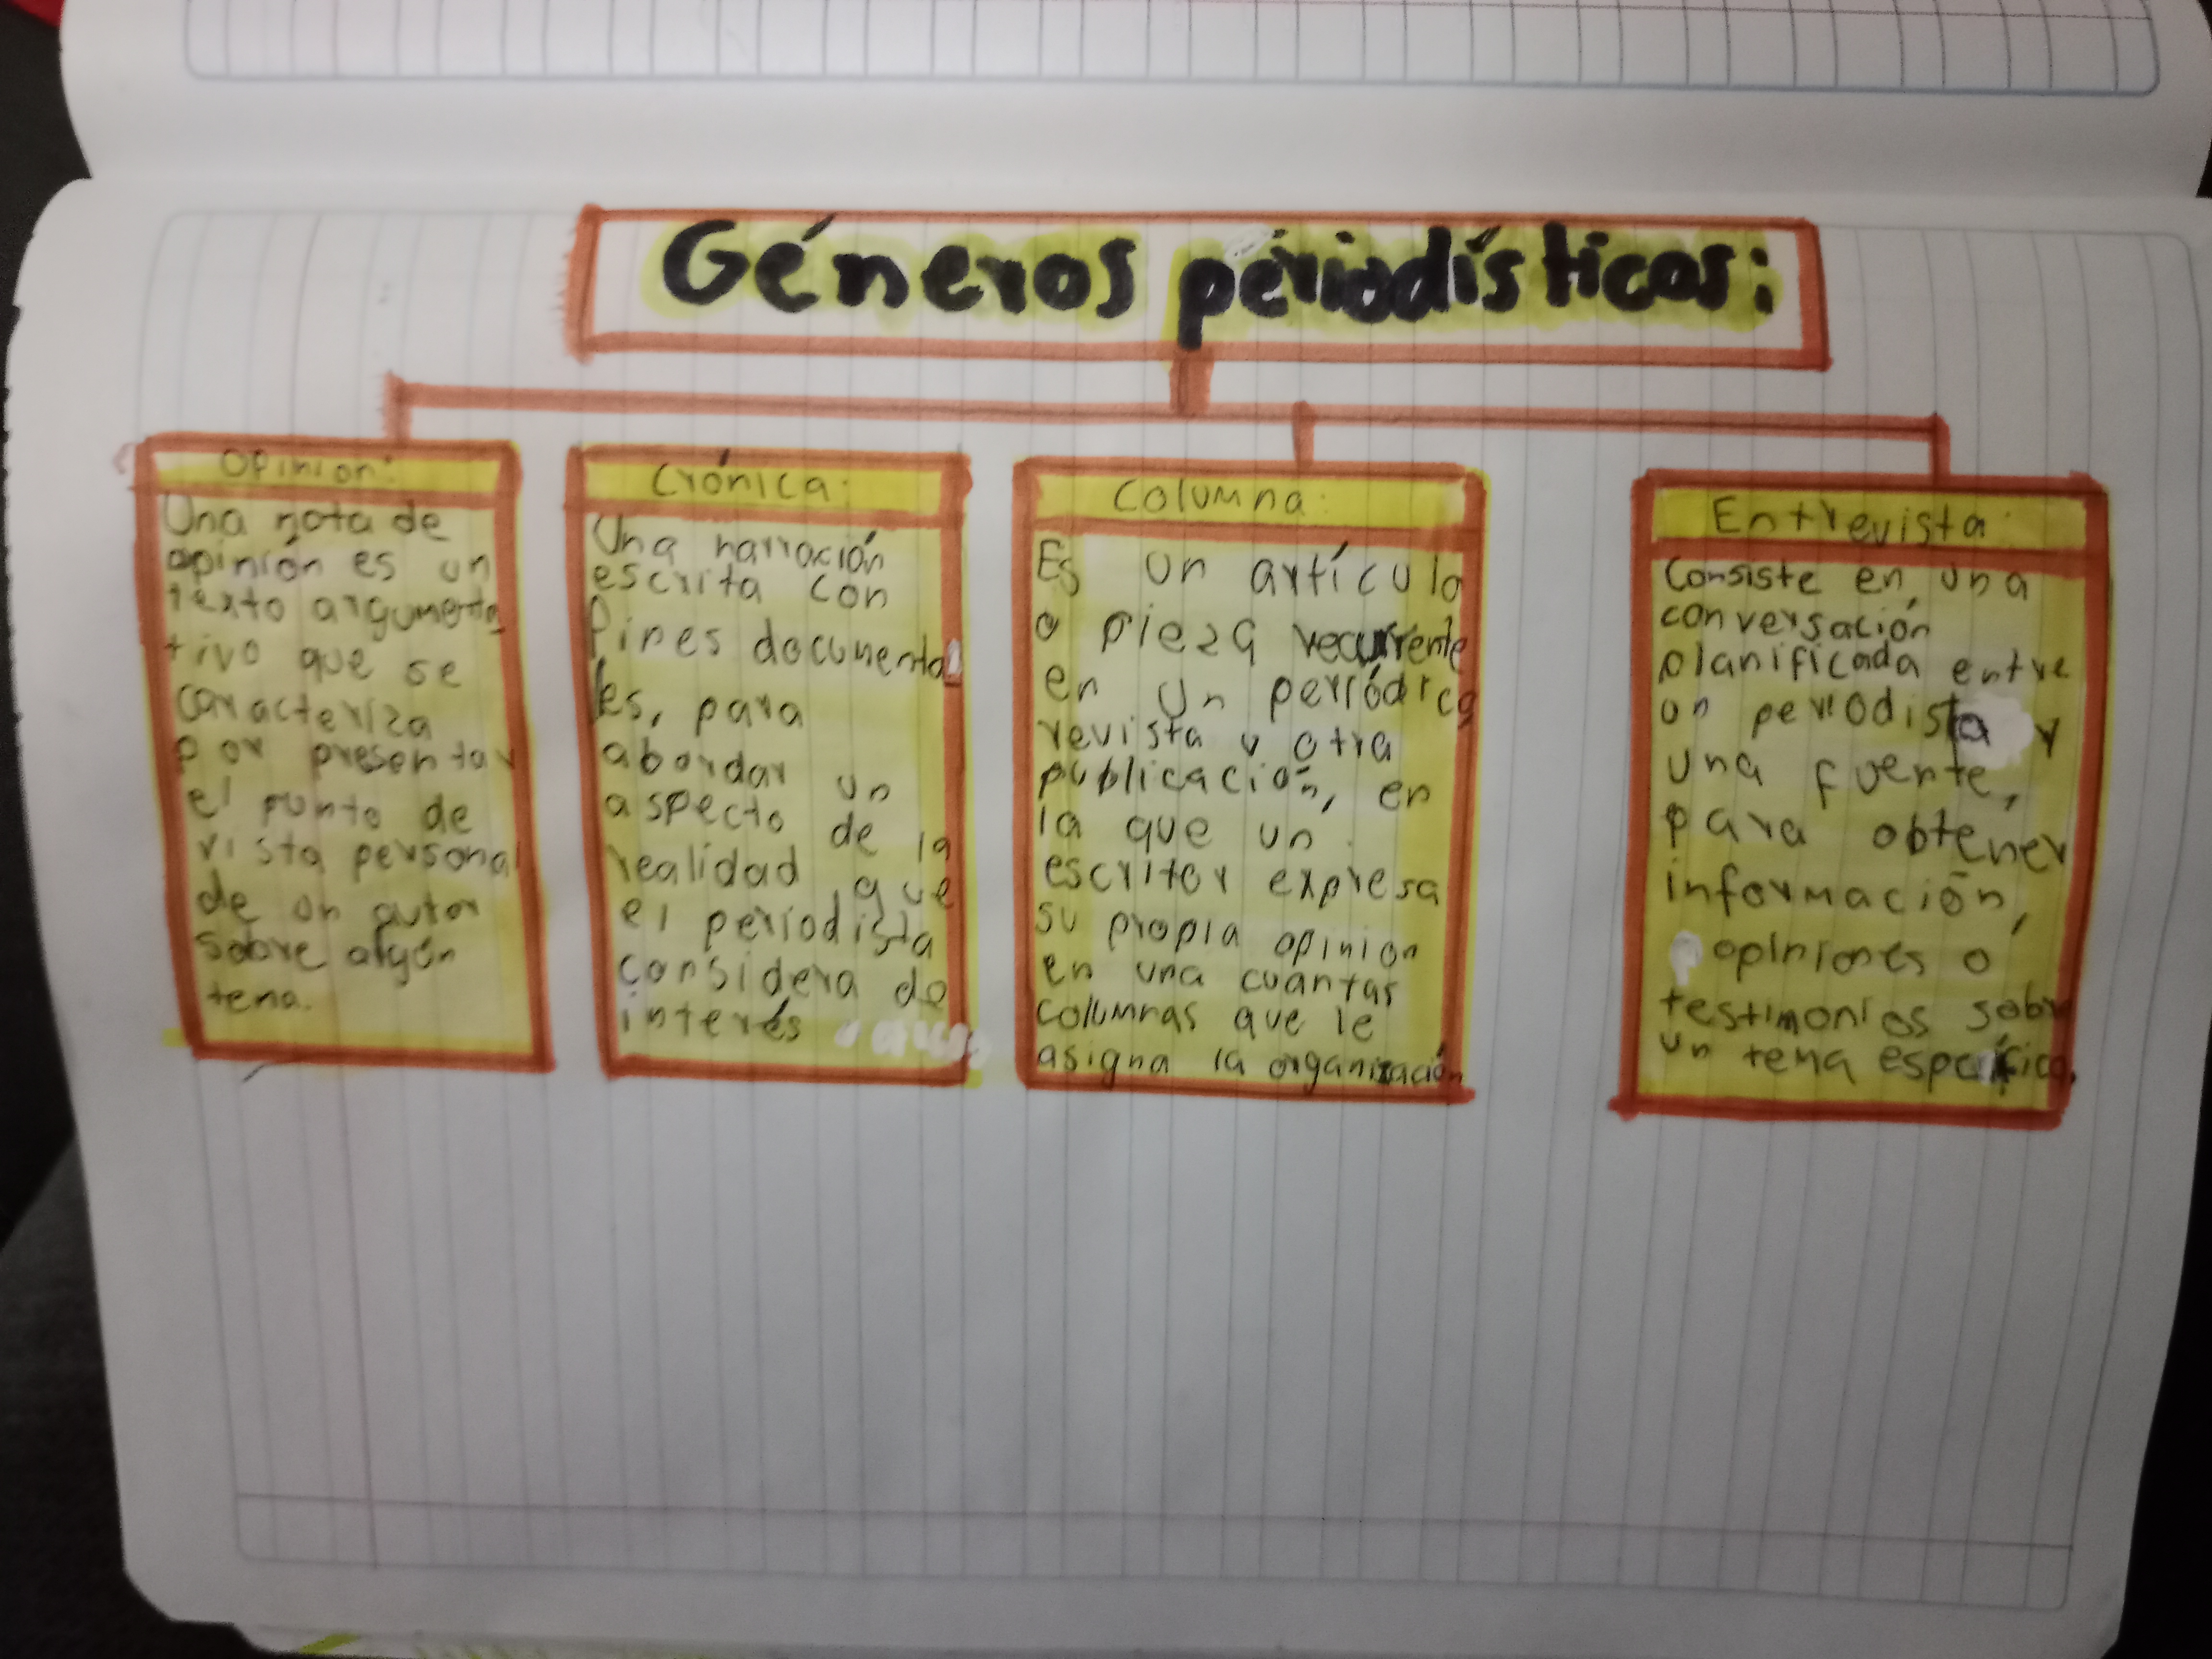 Géneros periodísticos:
Opinion:
Una nota de
opinión es un
texto argumenta
tivo que se
caracteriza
por presentar
el punto de
vista personal
de un autor
sobre algún
tema.
Crónica:
Una narración
escrita con
fines documenta
les, para
abordar un
aspecto de la
realidad que
el periodista
considera de
interés
Columna:
Es un artículo
o pieza recurrente
en un periódico
revista u otra
publicación, en
la que un
escritor expresa
su propia opinion
en una cuantas
columnas que le
asigna la organización
Entrevista:
Consiste en una
conversación
planificada entre
un periodista y
una fuente,
para obtener
información,
opiniones o
testimonios sobre
un tema específico.